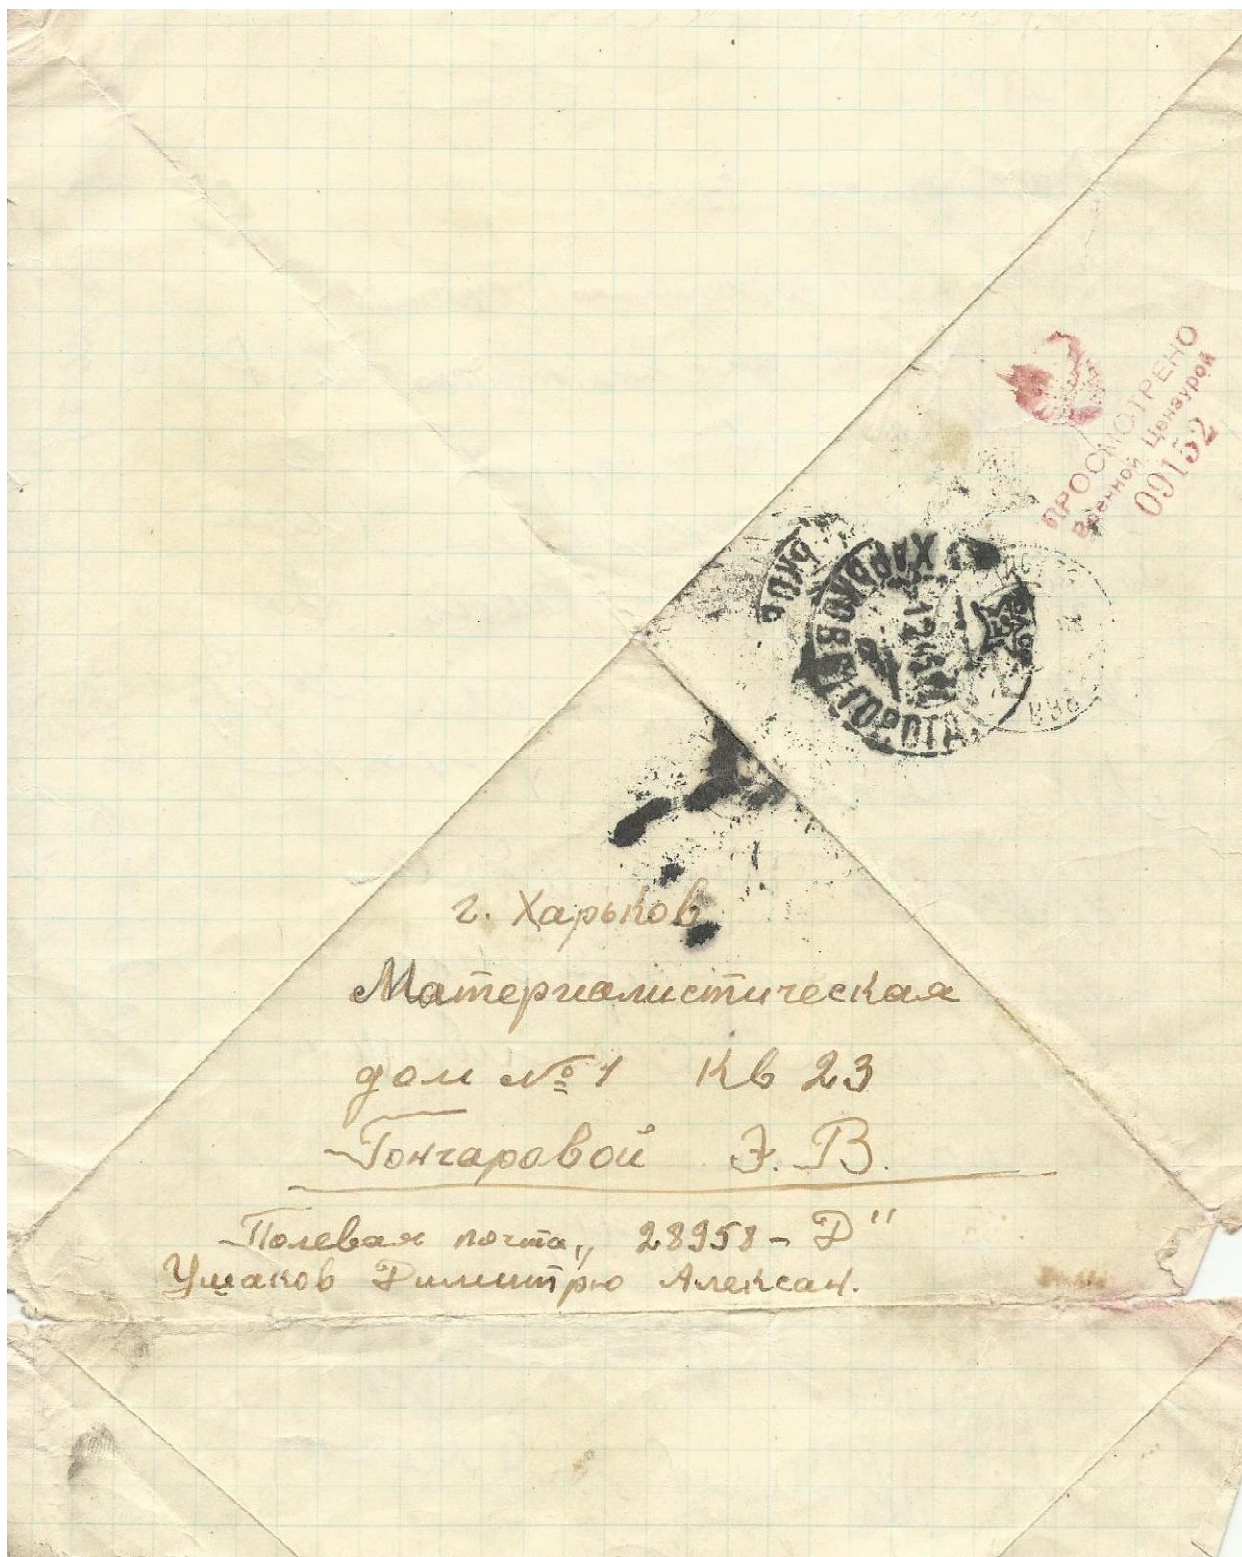 ПРОСМОТРЕНО
Военной Цензурой
09152
ХАРЬКОВ
г. Харьков
Материалистическая
дом № 1 Кв 23
Гончаровой Э. В.
Полевая почта „ 28958 - Д"
Ушаков Димитрю Алексан.